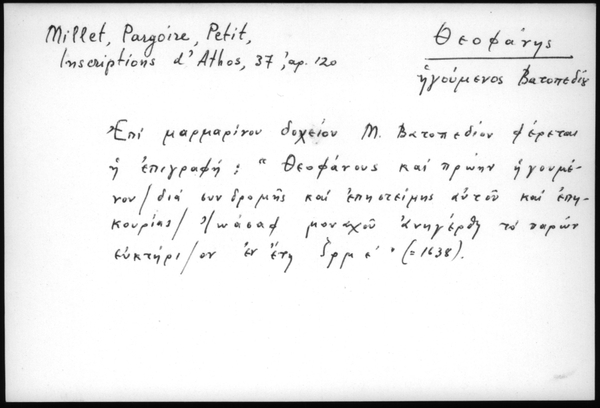 Millet, Pargoire, Petit,
Inscriptions d'Athos, 37, ἀρ. 120
Θεοφάνης
ἡγούμενος Βατοπεδίου
Ἐπί μαρμαρίνου δοχείου Μ. Βατοπεδίου φέρεται
ἡ ἐπιγραφή: "Θεοφάνους καί πρώην ἡγουμέ-
νου/διά συνδρομῆς καί ἐπηστείμης αὐτοῦ καί ἐπη-
κουρίας/Ἰ/ωάσαφ μοναχοῦ ἀνηγέρθη τό παρών
εὐκτήρι/ον ἐν ἔτη ζρμς΄" (=1638).